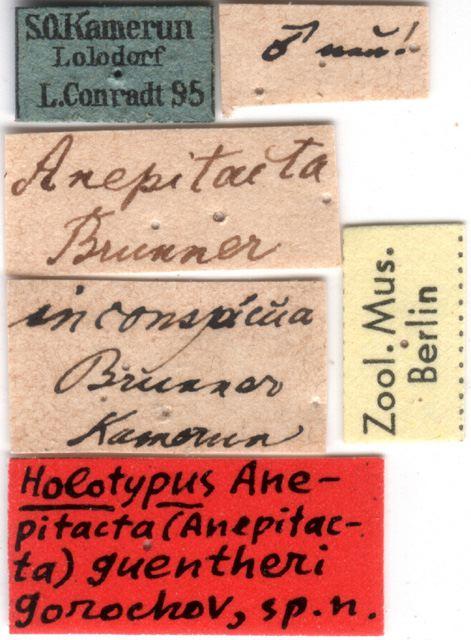 S.O.Kamerun
Lolodorf
L.Conradt 95
♂ nŭn!
Anepitacta
Brunner
inconspicŭa
Brŭnner
Kamerun
Zool. Mus.
Berlin
Holotypus Ane-
pitacta (Anepitac-
ta) guentheri
gorochov, sp.n.